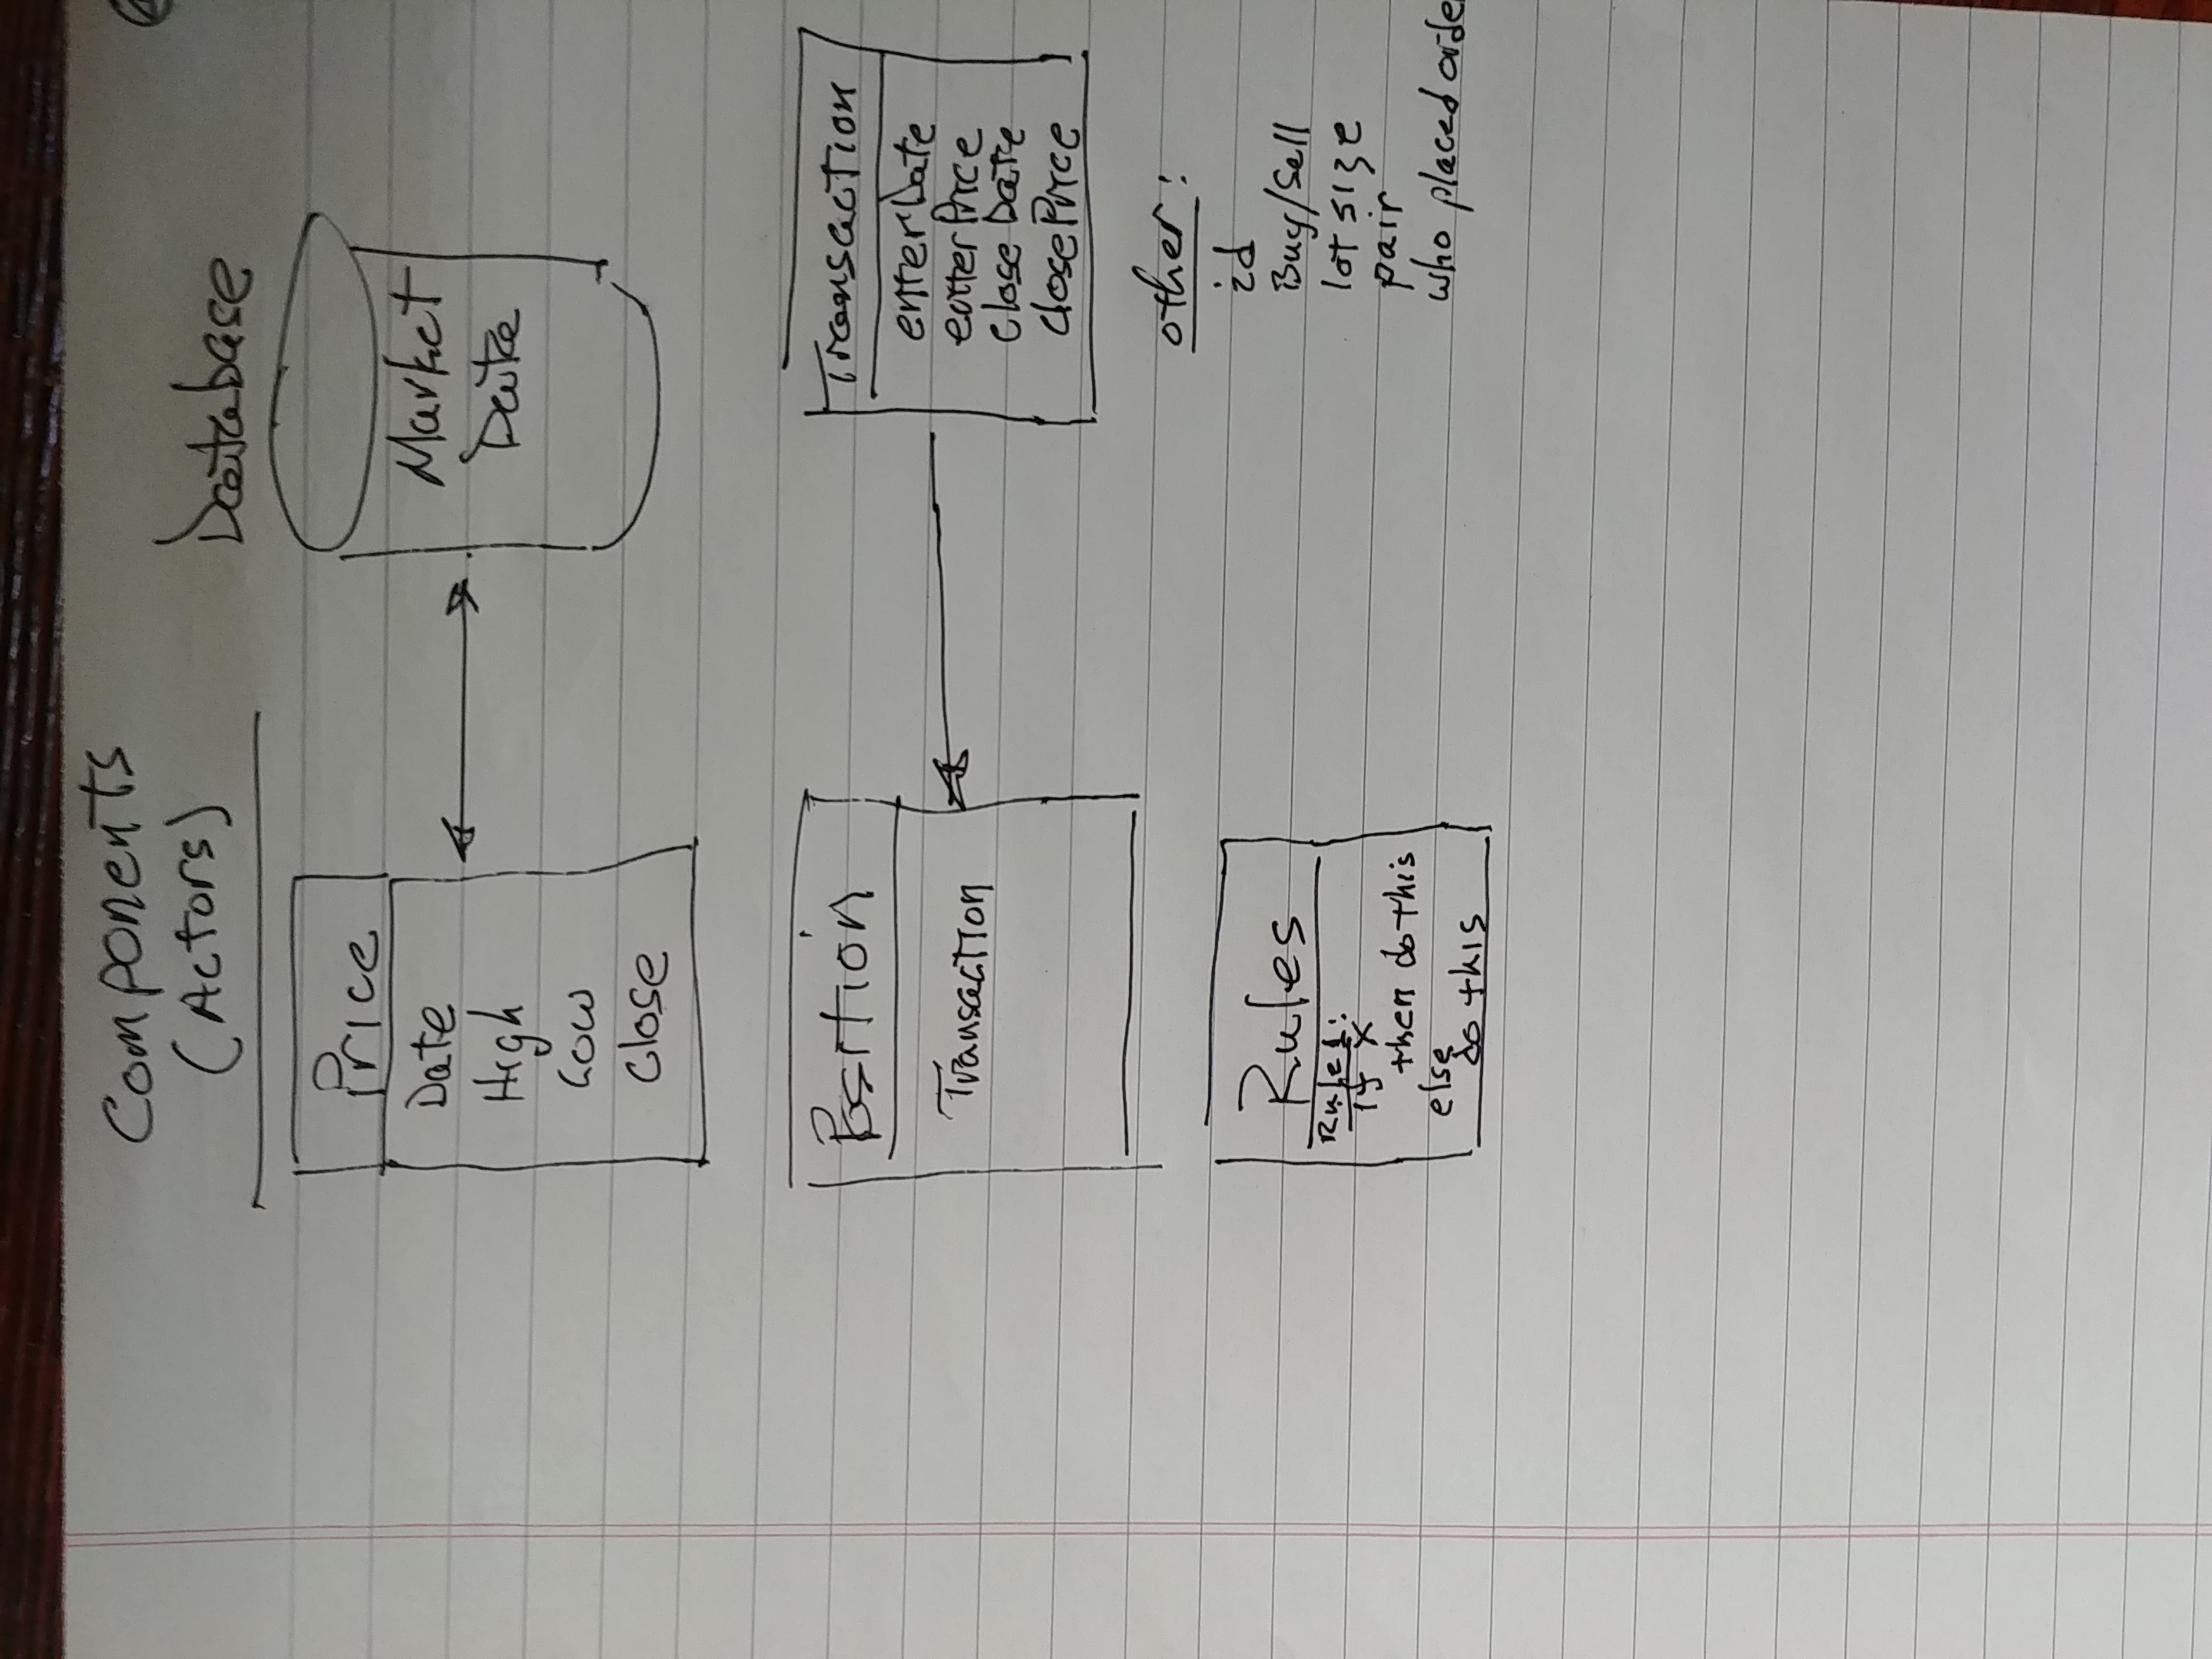 Components
(Actors)
Database
Price
Date
High
Low
Close
Market
Data
Position
Transaction
Transaction
enterDate
enterPrice
Close Date
closePrice
other:
id
Buy/Sell
lot size
pair
who placed orde
Rules
Rule 1:
if x
then do this
else
do this